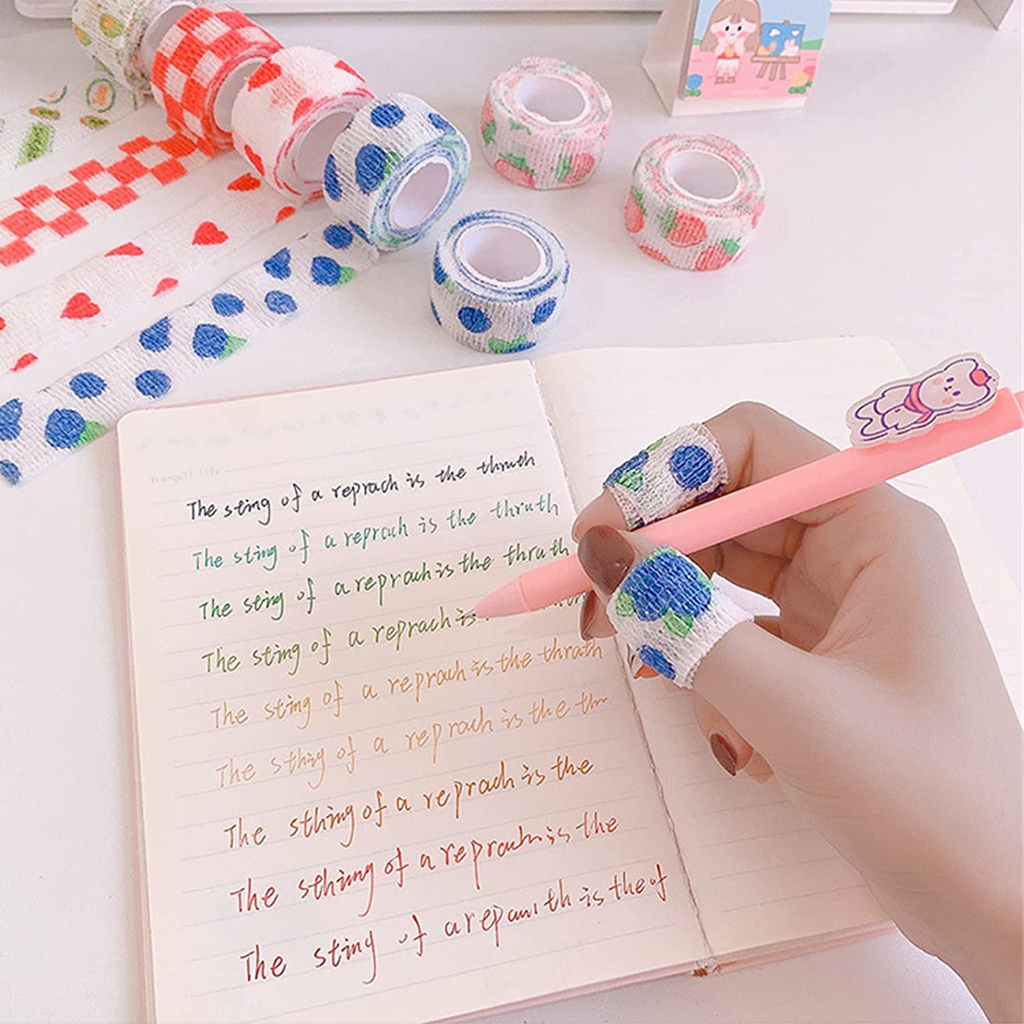 tranquil life
The sting of a reprach is the thruth
The sting of a reprach is the thruth
The sting of a reprach is the thruth
The sting of a reprach is
The sting of a reprach is the thrath
The sthing of a reproch is the th
The sthing of a reprach is the
The sthing of a reprach is the
The sting of a repanith is the of